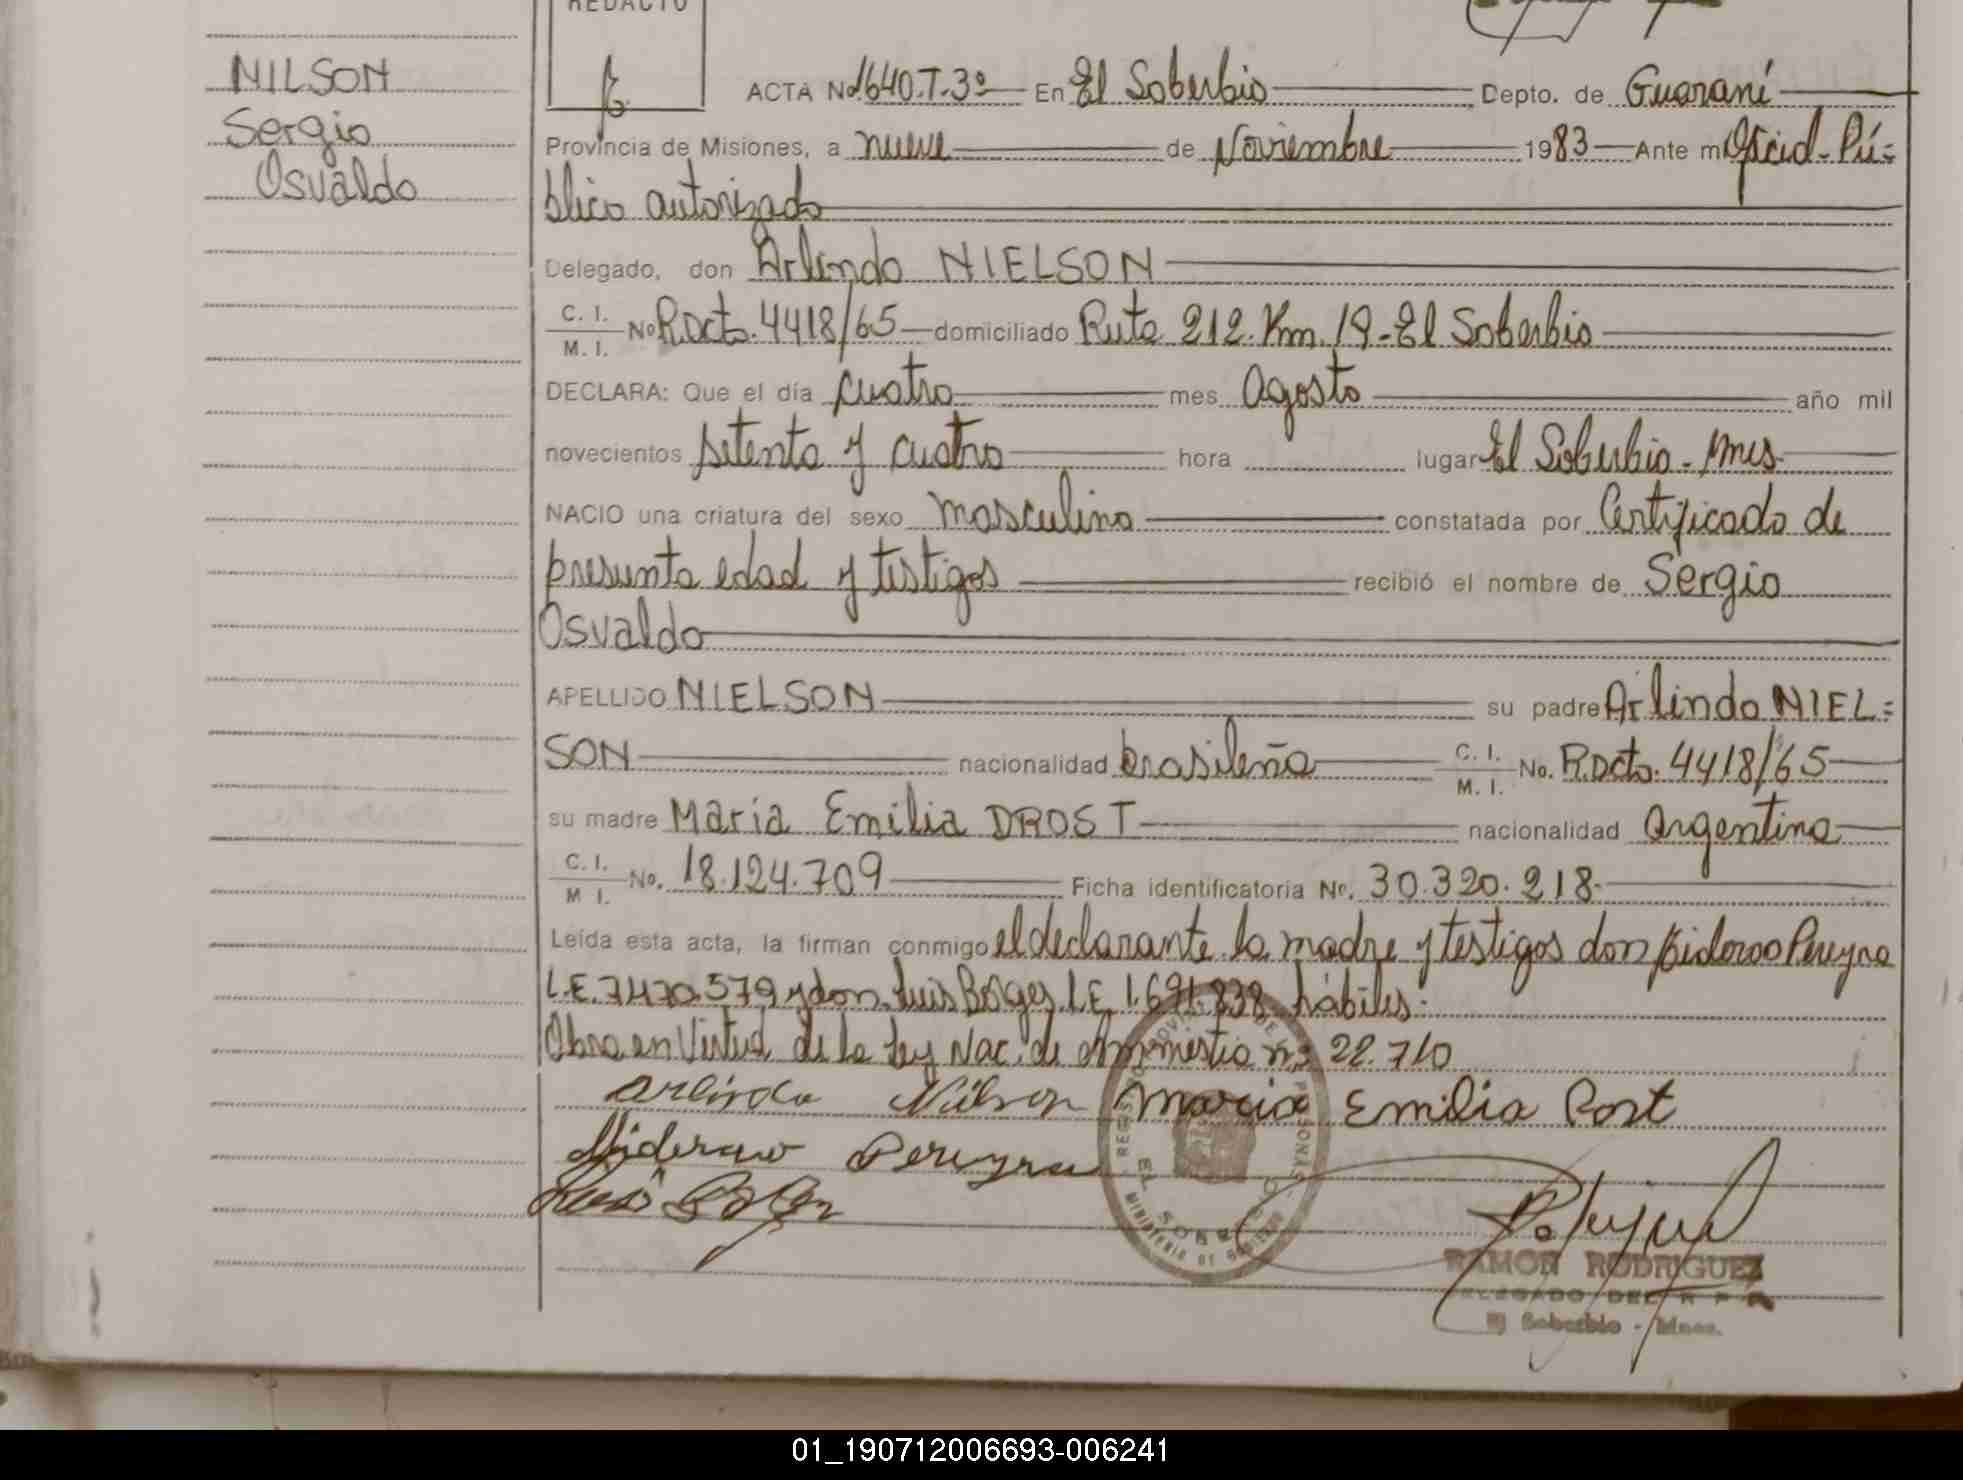 REDACTO
NILSON
Sergio
Osvaldo
ACTA No 1640.T.3º En El Soberbio Depto. de Guaraní
Provincia de Misiones, a nueve de Noviembre 1983 Ante mí Oficial Pú=
blico autorizado
Delegado, don Arlindo NIELSON
C. I. / M. I. No R.Dcto. 4418/65 domiciliado Ruta 212. Km. 19-El Soberbio
DECLARA: Que el día cuatro mes Agosto año mil
novecientos setenta y cuatro hora lugar El Soberbio-Mnes
NACIO una criatura del sexo masculino constatada por Certificado de
presunta edad y testigos recibió el nombre de Sergio
Osvaldo
APELLIDO NIELSON su padre Arlindo NIEL=
SON nacionalidad brasileña C. I. / M. I. No. R.Dcto. 4418/65
su madre Maria Emilia DROST nacionalidad argentina
C. I. / M I. No. 18.124.709 Ficha identificatoria No. 30.320.218.
Leída esta acta, la firman conmigo el declarante la madre y testigos don Isidoroo Pereyra
L.E. 7.470.579 y don Luis Borges L.E 1.691.838 hábiles.
Obra en Virtud de la Ley Nac. de Ammistia nº 22.710
Arlindo Nilson Maria Emilia Post
Pereyra
REGISTRO PROVINCIAL DE PERSONAS
EL SOBERBIO
MINISTERIO DE GOBIERNO
RAMON RODRIGUEZ
DELEGADO DEL R P P
El Soberbio - Mnes.
01_190712006693-006241